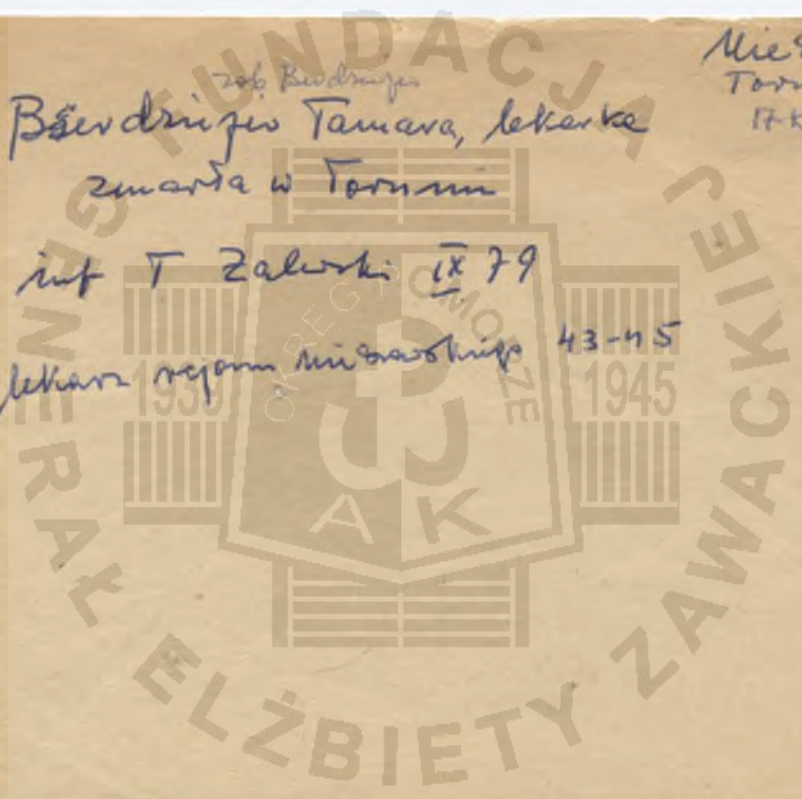 zob. Berdzisze
Berdziszew Tamara, lekarka
zmarła w Toruniu
inf T Zalewski IX 79
lekarz rejonu nieszawskiego 43-45
FUNDACJA
GENERAŁ ELŻBIETY ZAWACKIEJ
OKRĘG POMORZE
1939
1945
AK